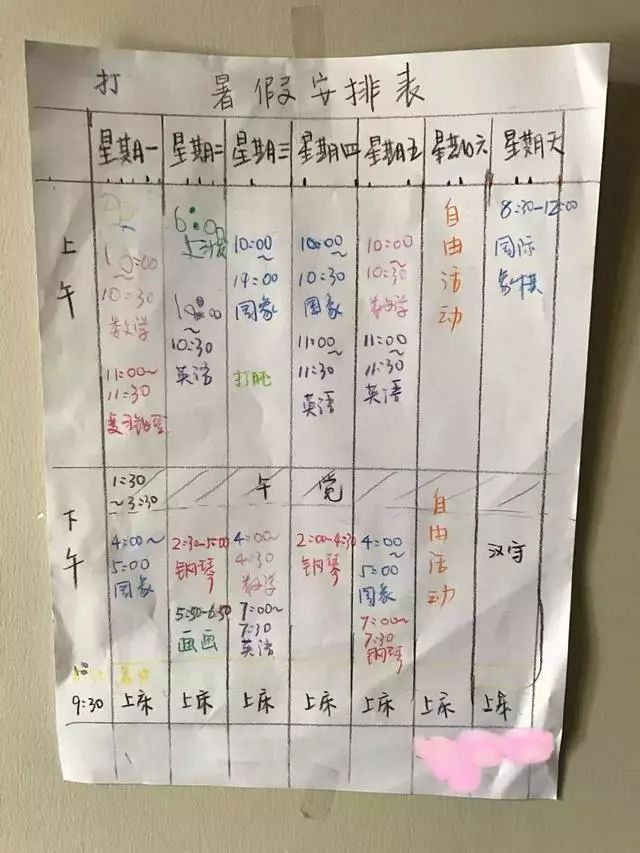 打 暑假安排表
星期一 星期二 星期三 星期四 星期五 星期六 星期天
上午
10:00
~
10:30
数学
11:00~
11:30
复习钢琴
6:00
10:00
~
10:30
英语
10:00
~
国象
10:00
~
10:30
国象
11:00
~
11:30
英语
10:00
~
10:30
数学
11:00
~
11:30
英语
自由活动
8:30-12:00
国际
象棋
下午
1:30
~3:30
午觉
4:00~
5:00
国象
2:30-5:00
钢琴
5:50-6:50
画画
4:00~
4:30
数学
7:00~
7:30
英语
2:00-4:30
钢琴
4:00
~
5:00
国象
7:00~
7:30
钢琴
自由活动
汉字
9:30 上床 上床 上床 上床 上床 上床 上床